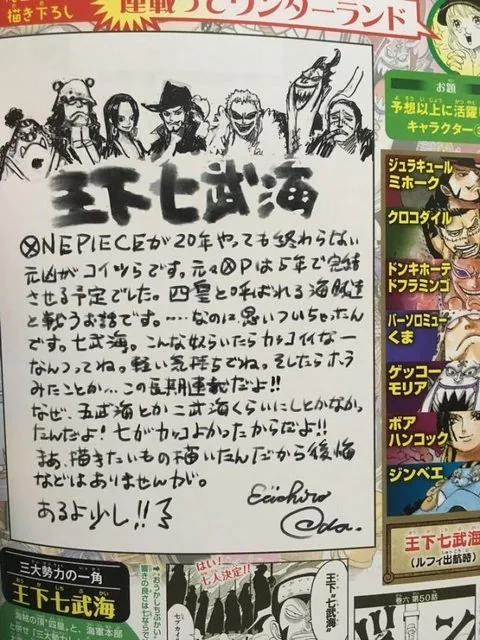 描き下ろし
連載ってワンダーランド
お題
予想以上に活躍
キャラクター
王下七武海
ⓍNE PIECEが20年やっても終わらない
元凶がコイツらです。元々ⓍPは5年で完結
させる予定でした。四皇と呼ばれる海賊達
と戦うお話です。……なのに思いついちゃったん
です。七武海。こんな奴らいたらカッコイイなー
なんつってね。軽い気持ちでね。そしたらホラ
みたことか…この長期連載だよ!!
なぜ、五武海とか二武海くらいにしとかなかっ
たんだよ!七がカッコよかったからだよ!!
まあ、描きたいもの描いたんだから後悔
などはありませんが。
あるよ少し!!
Eiichiro
Oda.
ジュラキュール
ミホーク
クロコダイル
ドンキホーテ
ドフラミンゴ
バーソロミュー
くま
ゲッコー
モリア
ボア
ハンコック
ジンベエ
王下七武海
(ルフィ出航時)
三大勢力の一角
王下七武海
はい!
七人決定!!
王下“七武海”
巻六 第50話